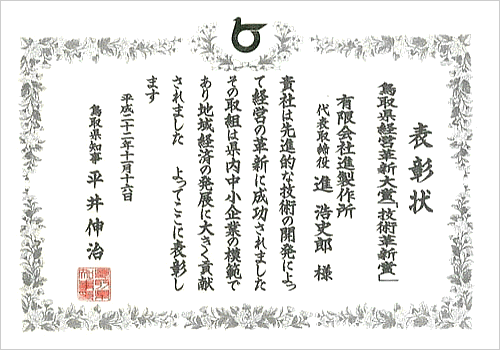 表彰状
鳥取県経営革新大賞「技術革新賞」
有限会社進製作所
代表取締役 進 浩史郎 様
貴社は先進的な技術の開発によっ
て経営の革新に成功されました
その取組は県内中小企業の模範で
あり地域経済の発展に大きく貢献
されました よってここに表彰し
ます
平成二十二年十一月十六日
鳥取県知事 平井伸治